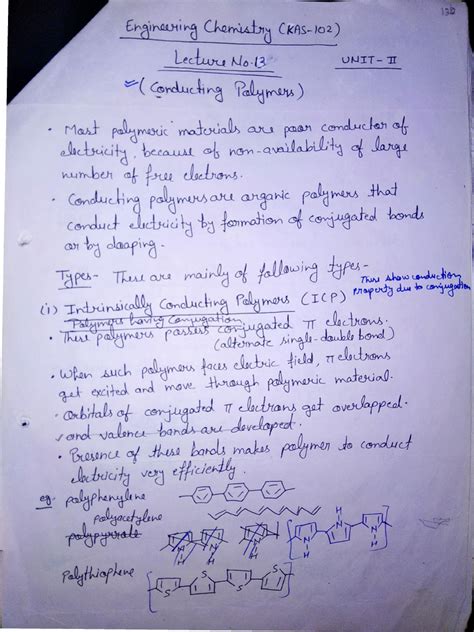 130
Engineering Chemistry (KAS-102)
Lecture No.13 UNIT-II
(Conducting Polymers)
• Most polymeric materials are poor conductor of
electricity, because of non-availability of large
number of free electrons.
• Conducting polymers are organic polymers that
conduct electricity by formation of conjugated bonds
or by doaping.
Types- There are mainly of following types-
These show conduction
property due to conjugation
(i) Intrinsically Conducting Polymers (ICP)
Polymers having Conjugation
• These polymers possess conjugated π electrons.
(alternate single-double bond)
• When such polymers faces electric field, π electrons
get excited and move through polymeric material.
• Orbitals of conjugated π electrons get overlapped.
and valence bonds are developed.
• Presence of these bonds makes polymer to conduct
electricity very efficiently.
eg. polyphenylene
polyacetylene
polypyrrole
N H N H N H N H N H N H
Polythiophene
S S S S